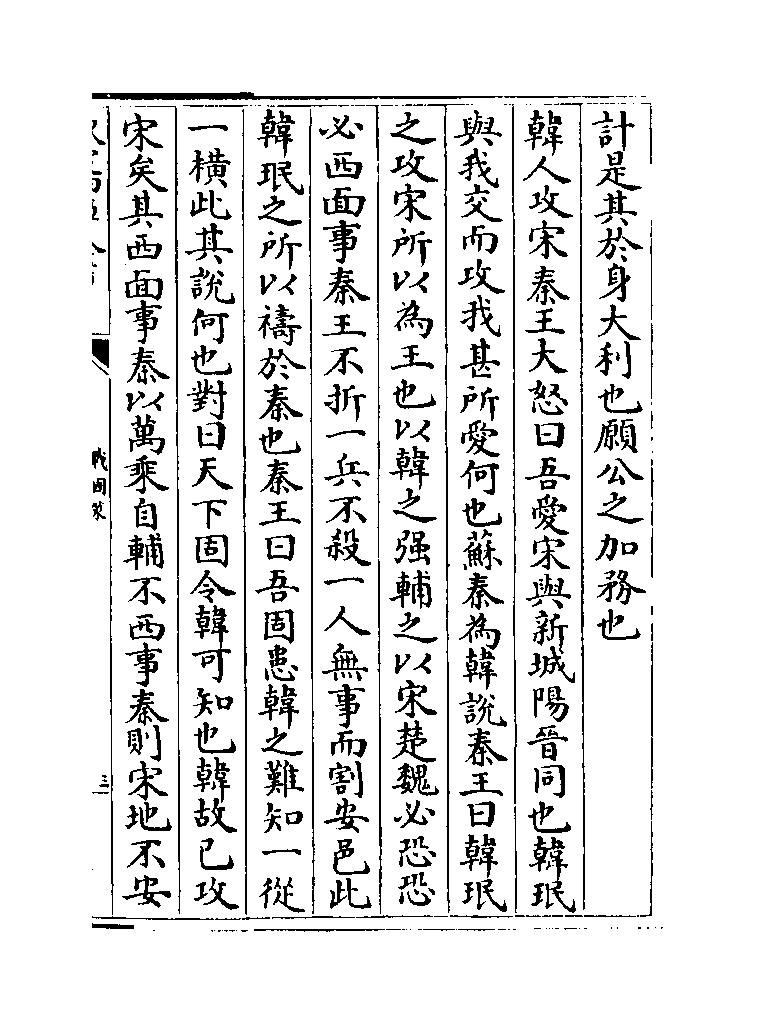 計是其於身大利也願公之加務也
韓人攻宋秦王大怒曰吾愛宋與新城陽晉同也韓珉
與我交而攻我甚所愛何也蘇秦為韓說秦王曰韓珉
之攻宋所以為王也以韓之强輔之以宋楚魏必恐恐
必西面事秦王不折一兵不殺一人無事而割安邑此
韓珉之所以禱於秦也秦王曰吾固患韓之難知一從
一橫此其說何也對曰天下固令韓可知也韓故已攻
宋矣其西面事秦以萬乘自輔不西事秦則宋地不安
戰國策
三